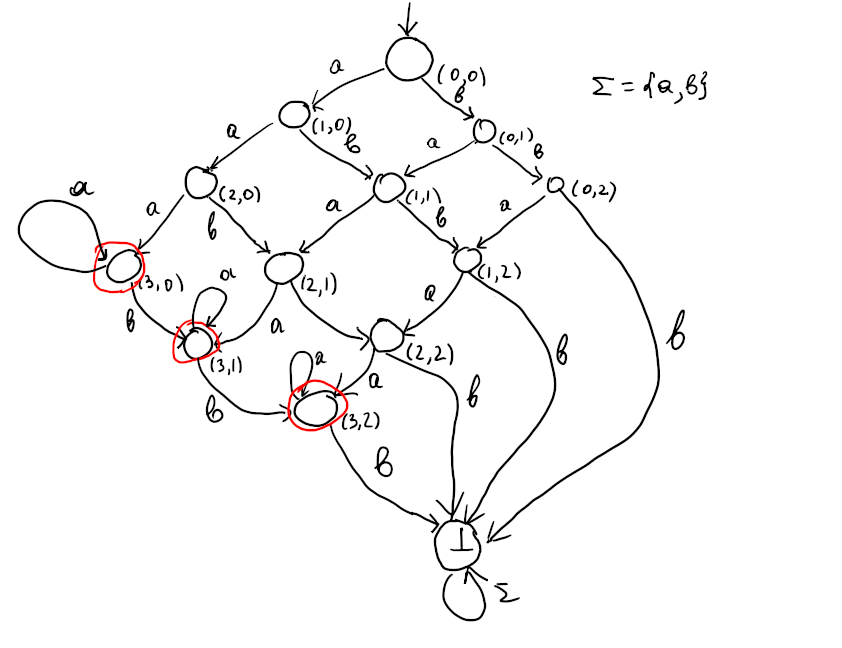 a
(0,0)
Σ = {a,b}
b
(1,0)
(0,1)
a
b
a
b
(2,0)
(1,1)
(0,2)
a
a
b
a
b
a
(3,0)
(2,1)
(1,2)
a
a
b
a
(3,1)
(2,2)
b
a
a
b
b
(3,2)
b
b
⊥
Σ